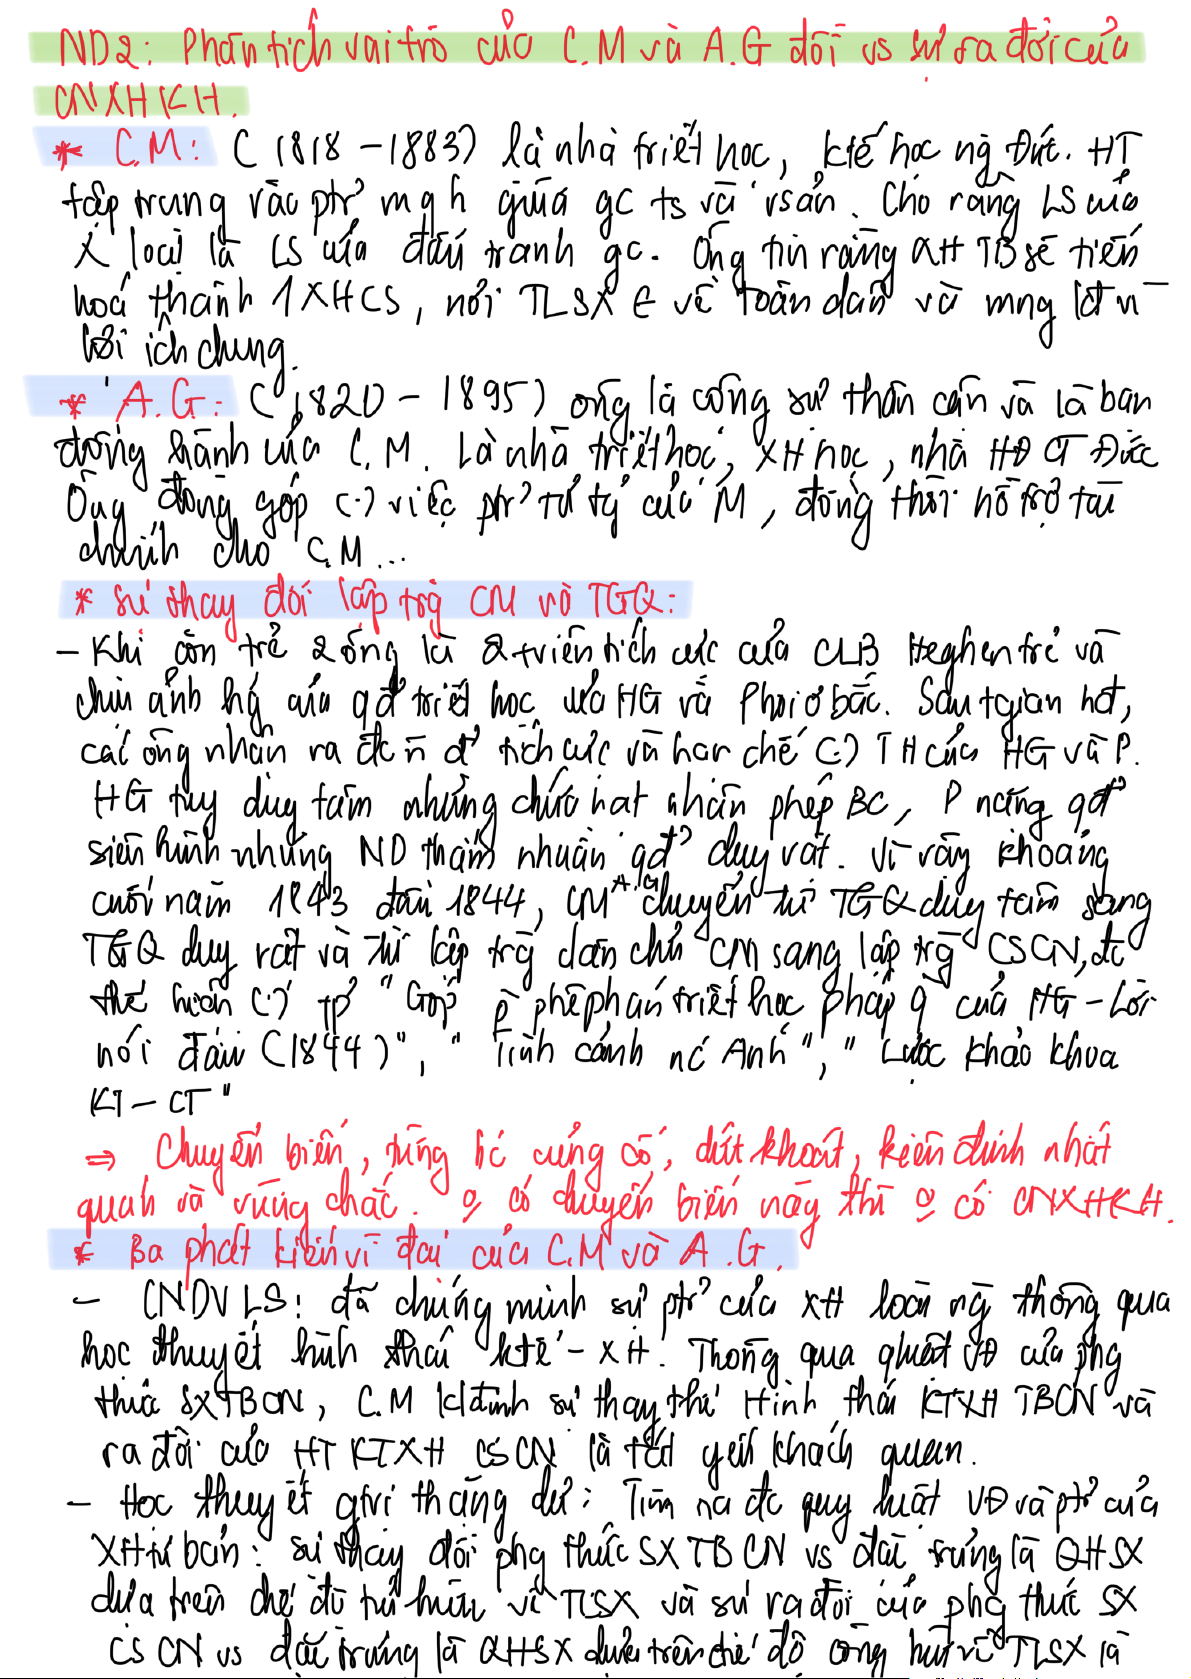 ND2: Phân tích vai trò của C.M và A.G đối vs sự ra đời của
CNXHKH.
* C.M: (1818 - 1883) là nhà triết học, ktế học ng Đức. HT
tập trung vào ptr mqh giữa gc ts và vsản. Cho rằng LS của
X loại là LS của đấu tranh gc. Ông tin rằng XH TB sẽ tiến
hoá thành 1 XHCS, nơi TLSX ∈ về toàn dân và mng lđ vì
lợi ích chung.
* A.G: (1820 - 1895) ông là cộng sự thân cận và là bạn
đồng hành của C.M. Là nhà triết học, XH học, nhà HĐ CT Đức
Ông đóng góp (.) việc ptr tư tg của M, đồng thời hỗ trợ tài
chính cho C.M...
* Sự thay đổi lập trg CM và TGQ:
- Khi còn trẻ 2 ông là 2 tviên tích cực của CLB Heghen trẻ và
chịu ảnh hg của qđ triết học của HG và Phoiơbắc. Sau tgian hđ,
các ông nhận ra đc n đ' tích cực và hạn chế (.) TH của HG và P.
HG tuy duy tâm nhưng chứa hạt nhân phép BC, P nặng qđ'
siêu hình nhưng ND thấm nhuần qđ' duy vật. Vì vậy khoảng
cuối năm 1843 đầu 1844, CM A.G chuyển từ TGQ duy tâm sang
TGQ duy vật và từ lập trg dân chủ CM sang lập trg CSCN, đc
thể hiện (.) tp "Góp phê phán triết học pháp q của HG - Lời
nói đầu (1844)", "Tình cảnh nc Anh", "Lược khảo khoa
KT - CT"
⇒ Chuyển biến, từng bc củng cố, dứt khoát, kiên định nhất
quán và vững chắc. 0 có chuyển biến này thì 0 có CNXHKH.
* Ba phát kiến vĩ đại của C.M và A.G.
- CNDVLS: đã chứng minh sự ptr của XH loài ng thông qua
học thuyết hình thái ktế - XH. Thông qua qluật VĐ của phg
thức SXTBCN, C.M kđịnh sự thay thế Hình thái KTXH TBCN và
ra đời của HT KTXH CSCN là tất yếu khách quan.
- Học thuyết gtrị thặng dư: Tìm ra đc quy luật VĐ và ptr của
XH tư bản: sự thay đổi phg thức SXTBCN vs đặc trưng là QHSX
dựa trên chế độ tư hữu về TLSX và sự ra đời của phg thức SX
CSCN vs đặc trưng là QHSX dựa trên chế độ công hữu về TLSX là